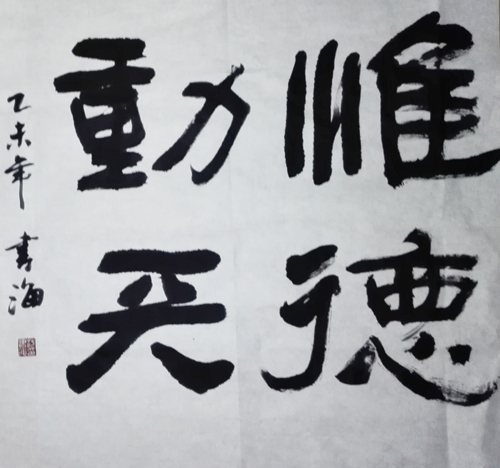 惟德
動天
乙未年 書海